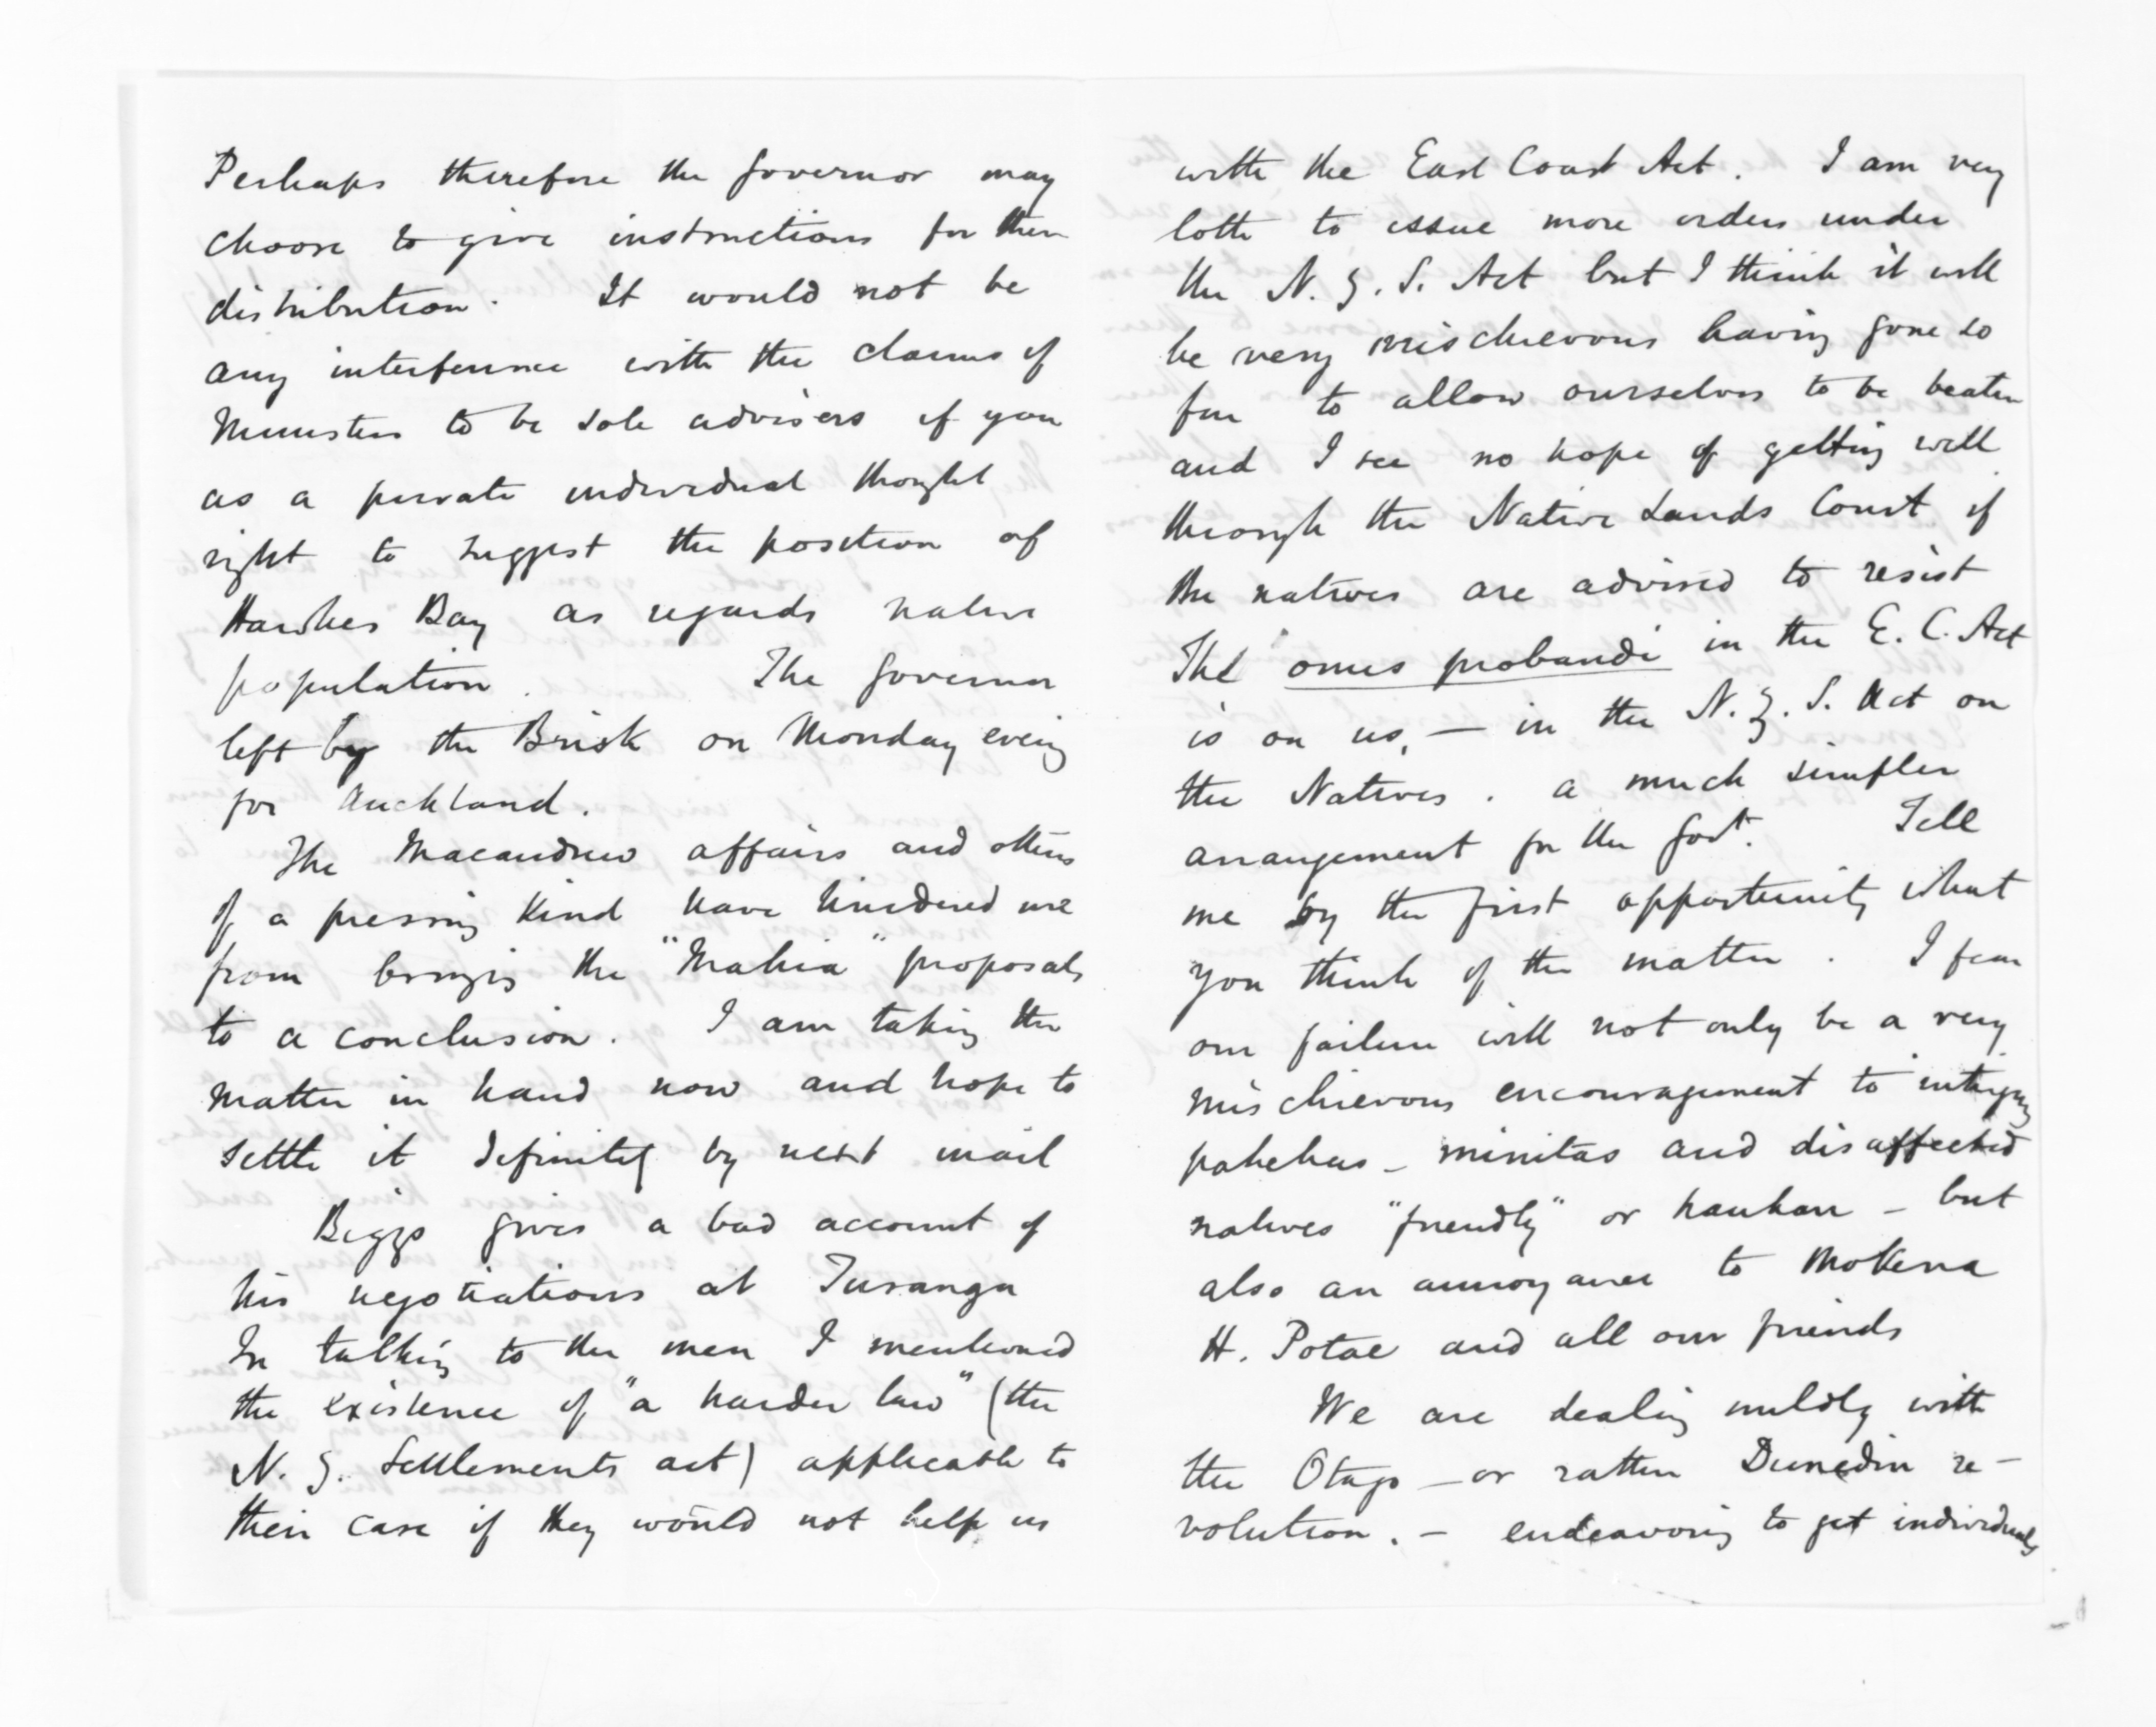 Perhaps therefore the Governor may
choose to give instructions for their
distribution. It would not be
any interference with the claims of
Ministers to be sole advisers if you
as a private individual thought
right to suggest the position of
Hawkes Bay as regards native
population. The Governor
left by the Brisk on Monday eveng
for Auckland.
The Macandrew affairs and others
of a pressing kind have hindered me
from bringing the "Mahia" proposals
to a conclusion. I am taking the
matter in hand now and hope to
settle it definitely by next mail
Biggs gives a bad account of
his negotiations at Turanga
In talking to the men I mentioned
the existence of "a harder law" (the
N. Z. Settlements act) applicable to
their case if they would not help us
with the East Coast Act. I am very
loth to issue more orders under
the N. Z. S. Act but I think it will
be very mischievous having gone so
far to allow ourselves to be beaten
and I see no hope of getting well
through the Native Lands Court if
the natives are advised to resist
The onus probandi in the E. C. Act
is on us, — in the N. Z. S. Act on
the Natives. a much simpler
arrangement for the Govt. Tell
me by the first opportunity what
you think of the matter. I fear
our failure will not only be a very
mischievous encouragement to intriguing
pakehas - minitas and disaffected
natives "friendly" or hauhau - but
also an annoyance to Mokena
H. Potae and all our friends
We are dealing mildly with
the Otago — or rather Dunedin re-
volution. - endeavoring to get individuals